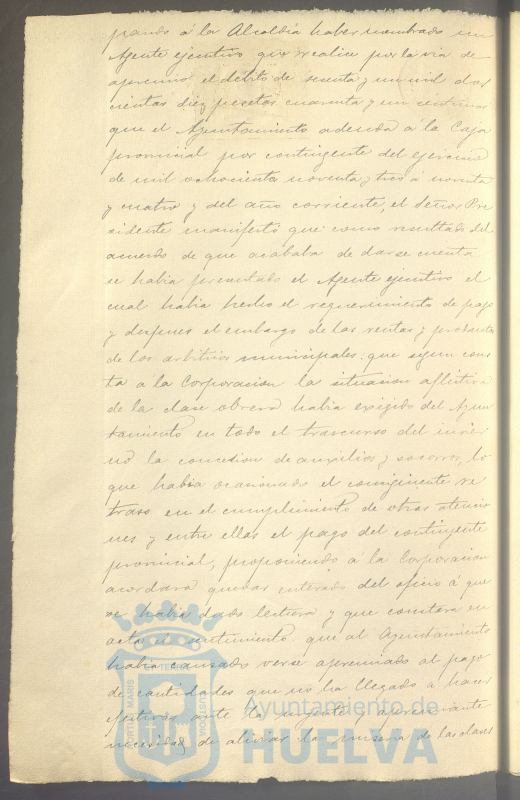 pando á la Alcaldía haber nombrado un
Agente ejecutivo que realice por la via de
apremio el débito de sesenta y un mil dos
cientas diez pesetas cuarenta y un centimos
que el Ayuntamiento adeuda á la Caja
provincial por contingente del ejercicio
de mil ochocientos noventa y tres á noventa
y cuatro y del año corriente, el Señor Pre
sidente manifestó que como resultado del
acuerdo de que acababa de darse cuenta
se habia presentado el Agente ejecutivo el
cual habia hecho el requerimiento de pago
y despues el embargo de las rentas y productos
de los arbitrios municipales: que segun cons
ta á la Corporacion la situacion aflictiva
de la clase obrera habia exigido del Ayun
tamiento en todo el trascurso del invier
no la concesion de auxilios y socorros, lo
que habia ocasionado el consiguiente re
traso en el cumplimiento de otras atencio
nes y entre ellas el pago del contingente
provincial, proponiendo á la Corporacion
acordara quedar enterado del oficio á que
se habia dado lectura y que constara en
acta el sentimiento que al Ayuntamiento
habia causado verse apremiado al pago
de cantidades que no ha llegado á hacer
efectivas ante la urgente y apremiante
necesidad de aliviar la miseria de las clases
PORTUS MARIS
ET TERRAE
CUSTODIA
Ayuntamiento de
HUELVA